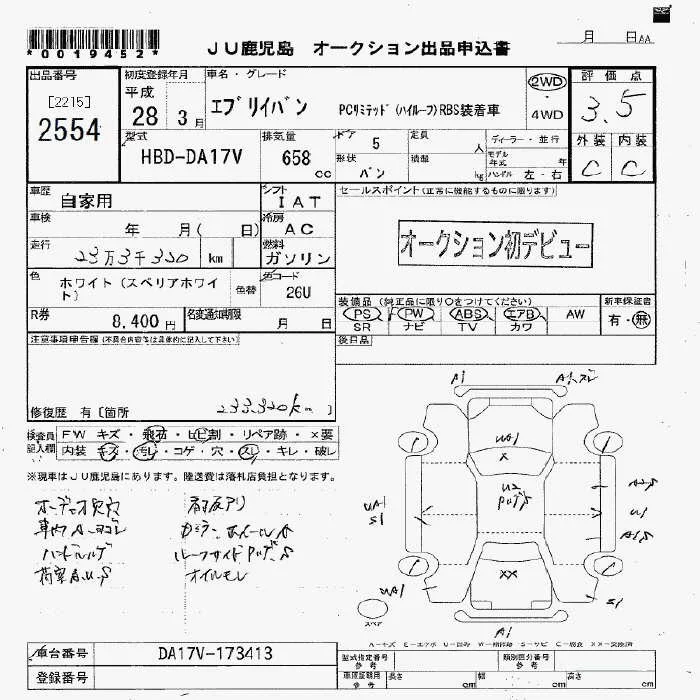 *0019452*
JU鹿児島 オークション出品申込書
月 日AA
出品番号
[2215]
2554
初度登録年月
平成
28 3月
車名・グレード
エブリイバン
PCリミテッド(ハイルーフ)RBS装着車
2WD
・
4WD
評価点
3.5
外装 内装
C C
型式
HBD-DA17V
排気量
658 cc
ドア 5
形状 バン
定員 人
積載 kg
ディーラー・並行
モデル年式 年
ハンドル 左・右
車歴
自家用
シフト
IAT
車検
年 月( 日)
冷房
AC
走行
23万3千320 km
燃料
ガソリン
色
ホワイト(スペリアホワイト)
色替
色コード
26U
R券
8,400円
名変通知期限
月 日
セールスポイント(正常に機能するものに限ります)
オークション初デビュー
装備品(純正品に限り○をつけてください)
PS PW ABS エアB AW
SR ナビ TV カワ
新車保証書
有・無
後日品
注意事項申告欄(不具合内容等は具体的に記入して下さい)
修復歴 有〔箇所 233,320km 〕
検査員記入欄
FW キズ・飛石・ヒビ割・リペア跡・×要
内装 キズ・汚レ・コゲ・穴・スレ・キレ・破レ
※現車はJU鹿児島にあります。陸送費は落札店負担となります。
オイルモレ
A1
UA1
U2
S1
U1
XX
UA1
S1
A1
スペア
車台番号
DA17V-173413
登録番号
型式指定番号
参考
類別区分番号
参考
車庫証明用
参考
長さ cm
幅 cm
高さ cm